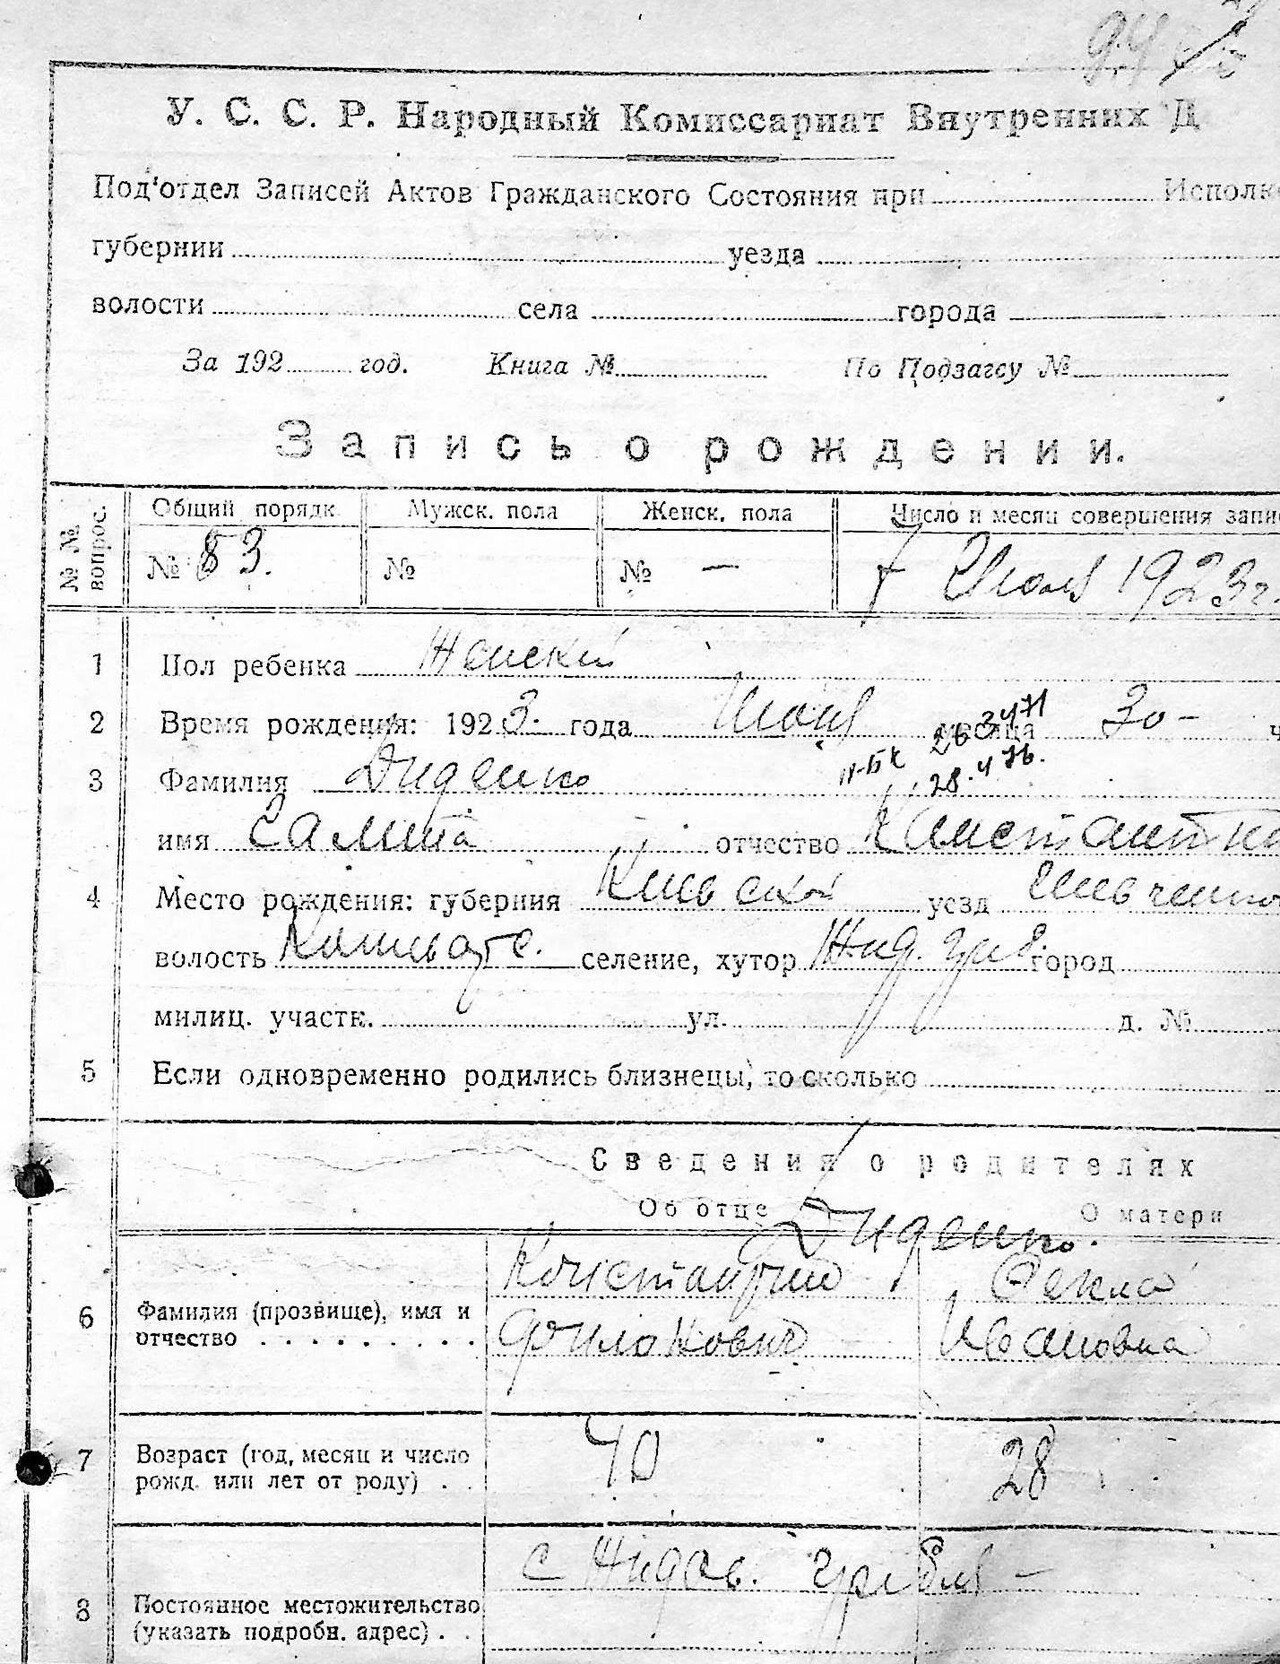 94
У. С. С. Р. Народный Комиссариат Внутренних Д
Под'отдел Записей Актов Гражданского Состояния при Исполк
губернии уезда
волости села города
За 192 год. Книга № По Подзагсу №
Запись о рождении.
№ № вопрос. Общий порядк. Мужск. пола Женск. пола Число и месяц совершения запис
№ 83. № № — 7 Июля 1923 г.
1 Пол ребенка Женский
2 Время рождения: 1923. года Июня месяца 30 – ч
26 3 471
3 Фамилия Диденко
28. 4 76.
имя отчество Константино
4 Место рождения: губерния Киевской уезд Шевченко
волость селение, хутор Жид. Греб. город
милиц. участк. ул. д. №
5 Если одновременно родились близнецы, то сколько
Сведения о родителях
Об отце О матери
Диденко.
6 Фамилия (прозвище), имя и отчество
Константин Фекла
Филонович Ивановна
7 Возраст (год, месяц и число рожд. или лет от роду)
40 28
с Жидов. Гребля –
8 Постоянное местожительство (указать подробн. адрес)